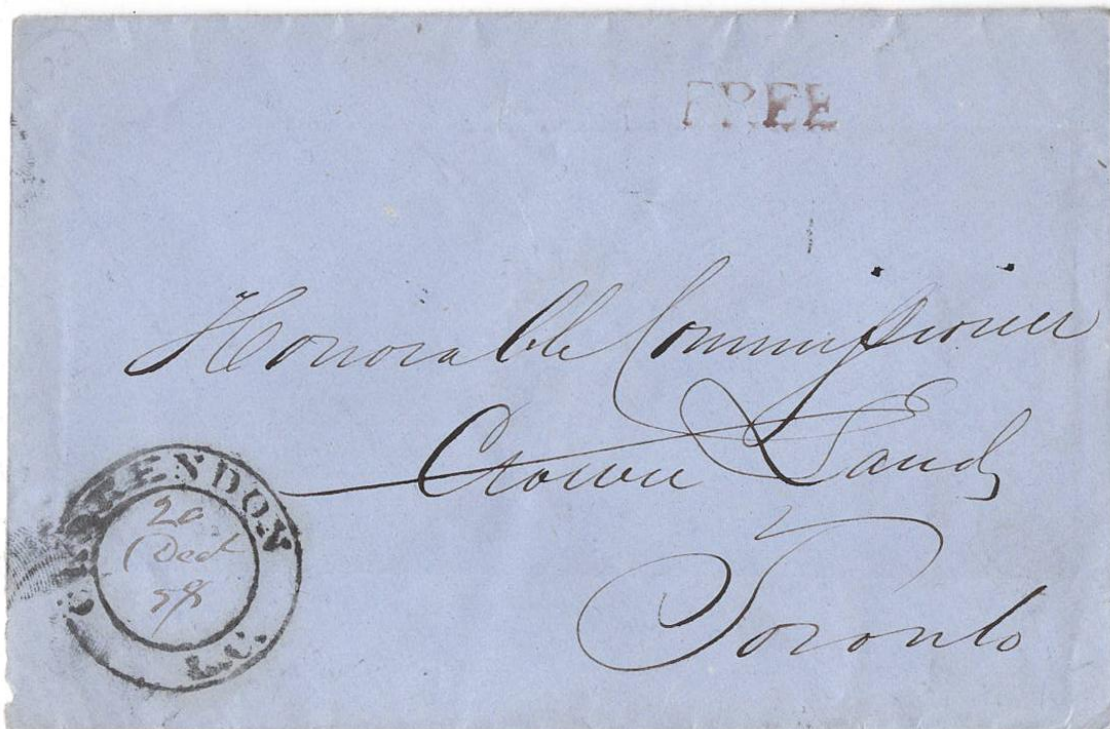 FREE
Honorable Commissioner
Crown Lands
Toronto
CLARENDON
20
Dec
58
L.C.